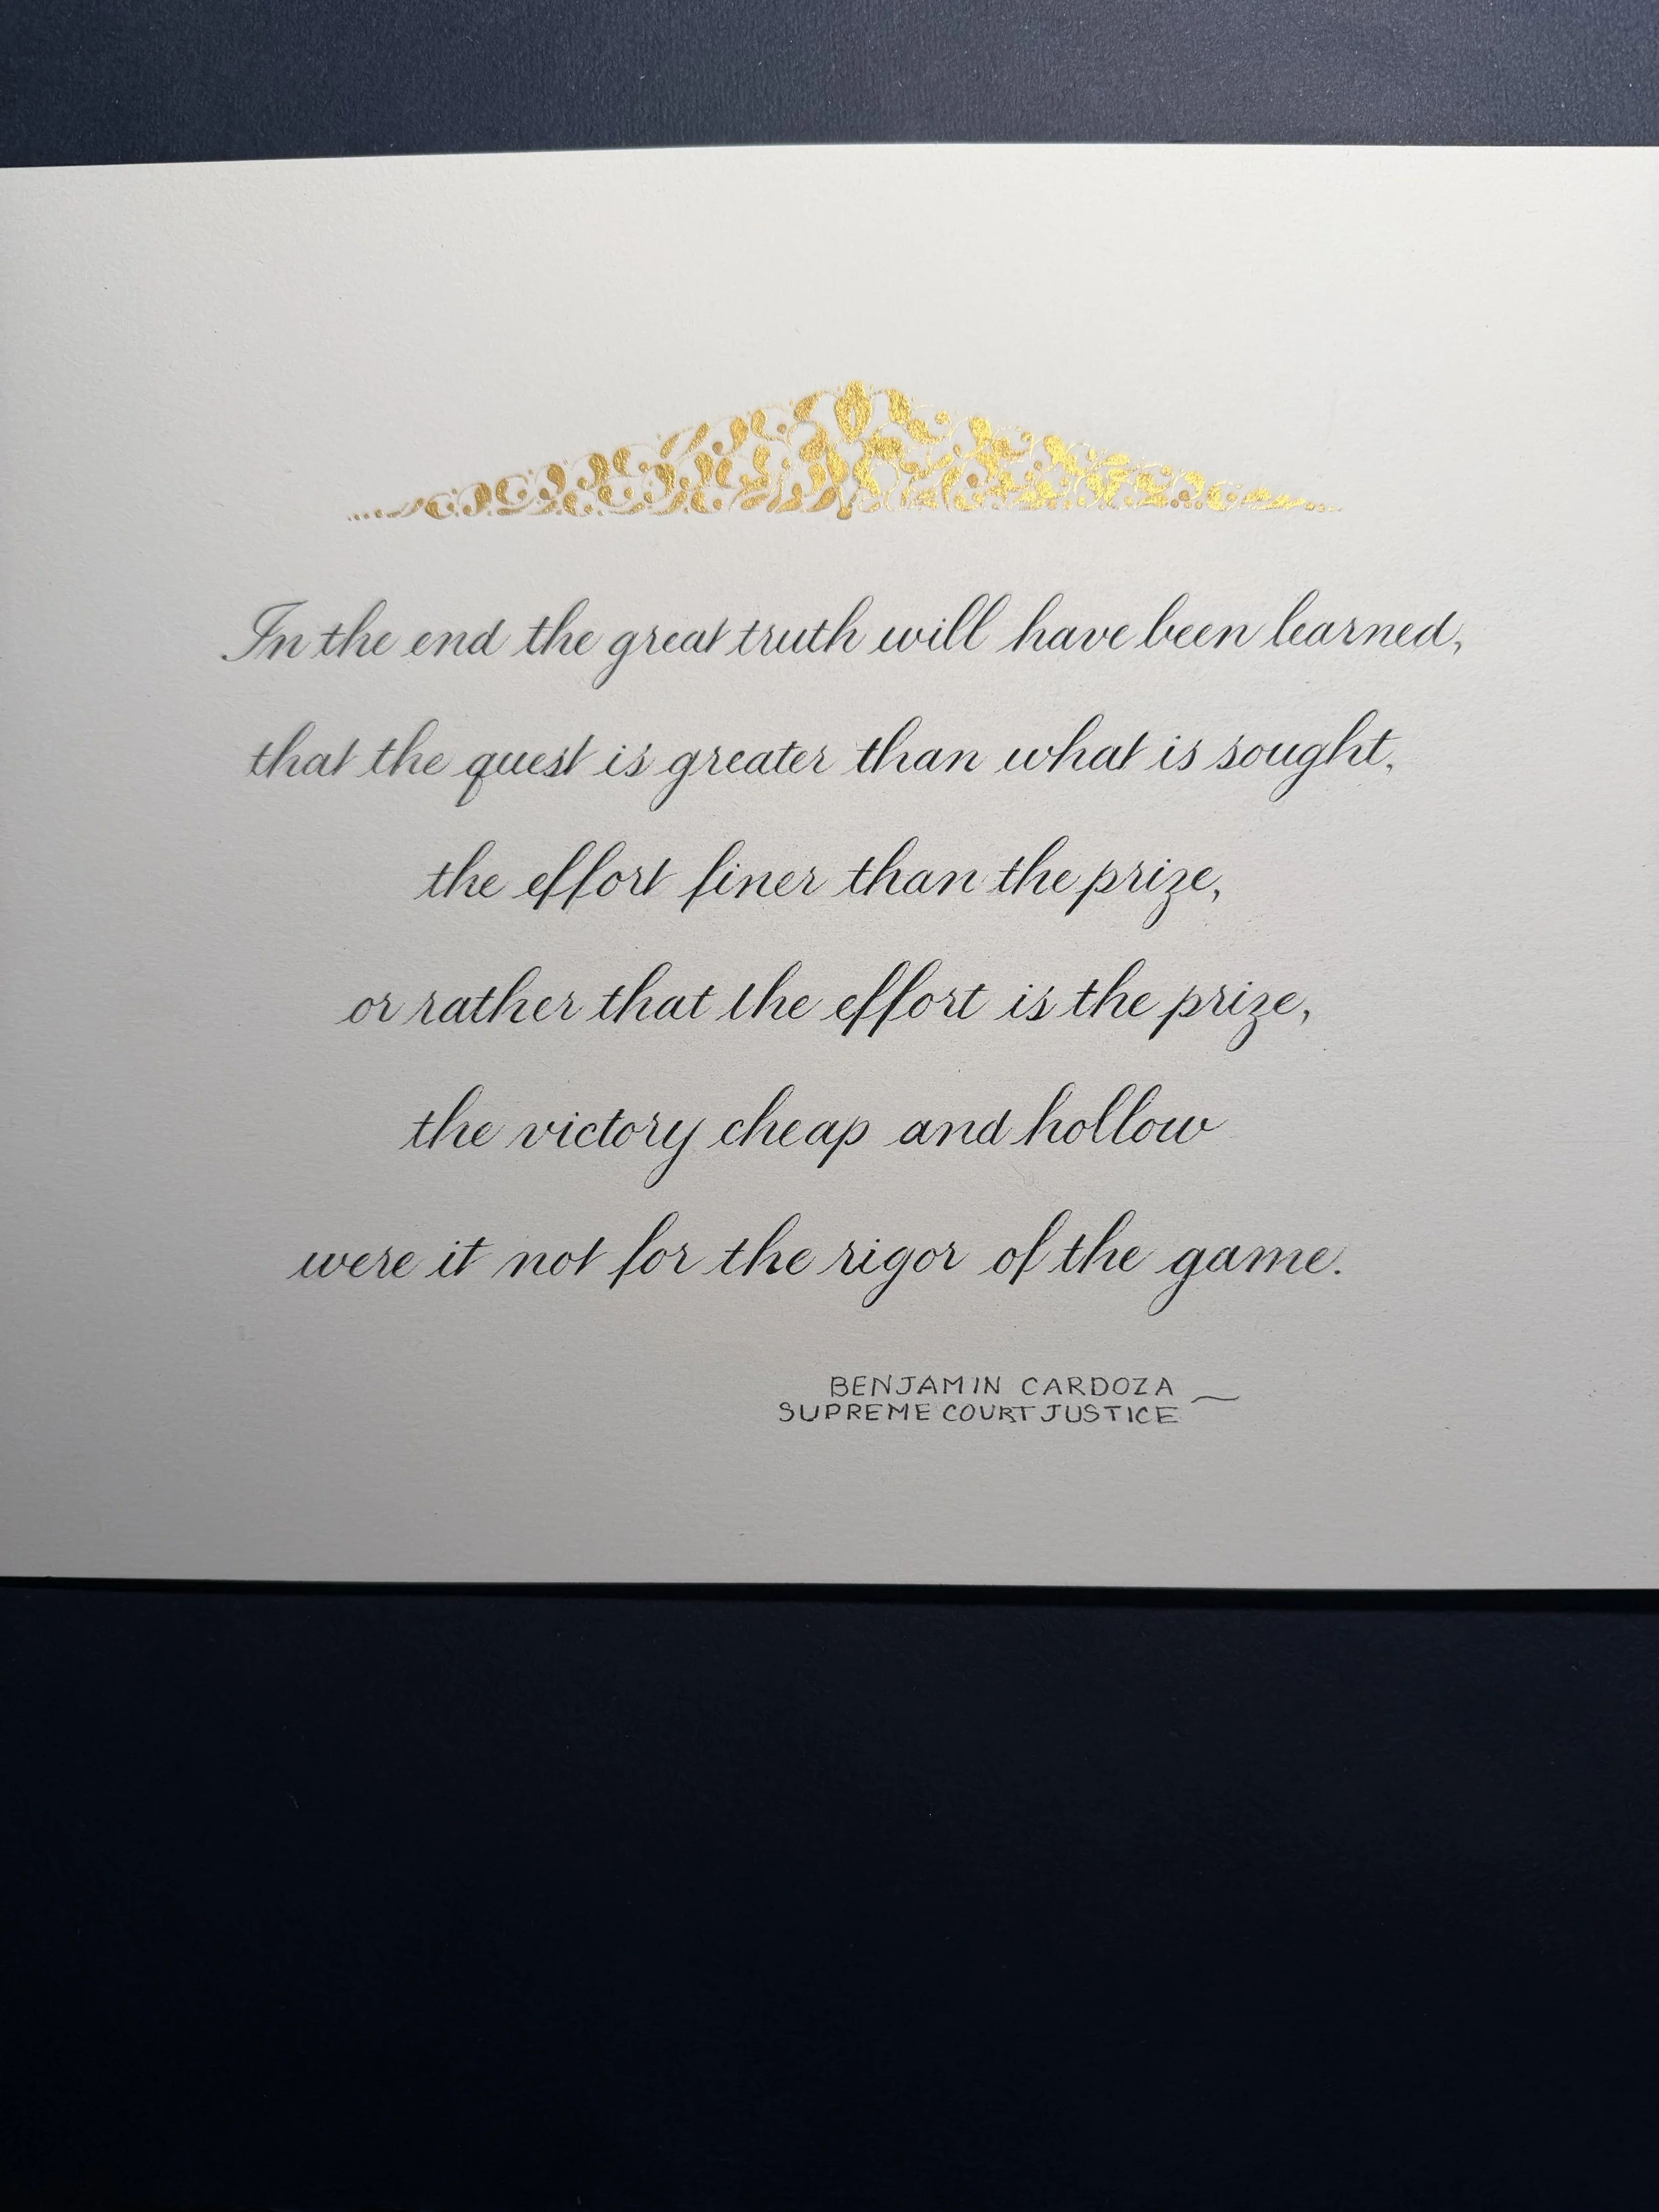 In the end the great truth will have been learned,
that the quest is greater than what is sought,
the effort finer than the prize,
or rather that the effort is the prize,
the victory cheap and hollow
were it not for the rigor of the game.
BENJAMIN CARDOZA
SUPREME COURT JUSTICE